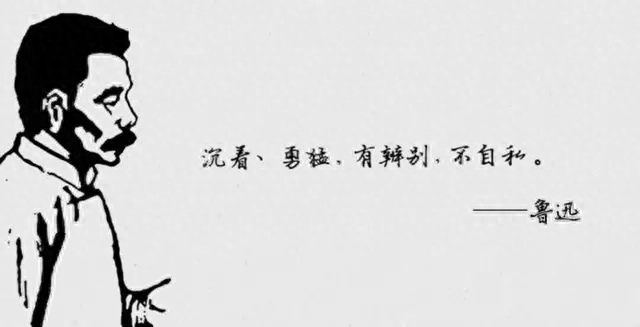 沉着、勇猛，有辨别，不自私。
——鲁迅